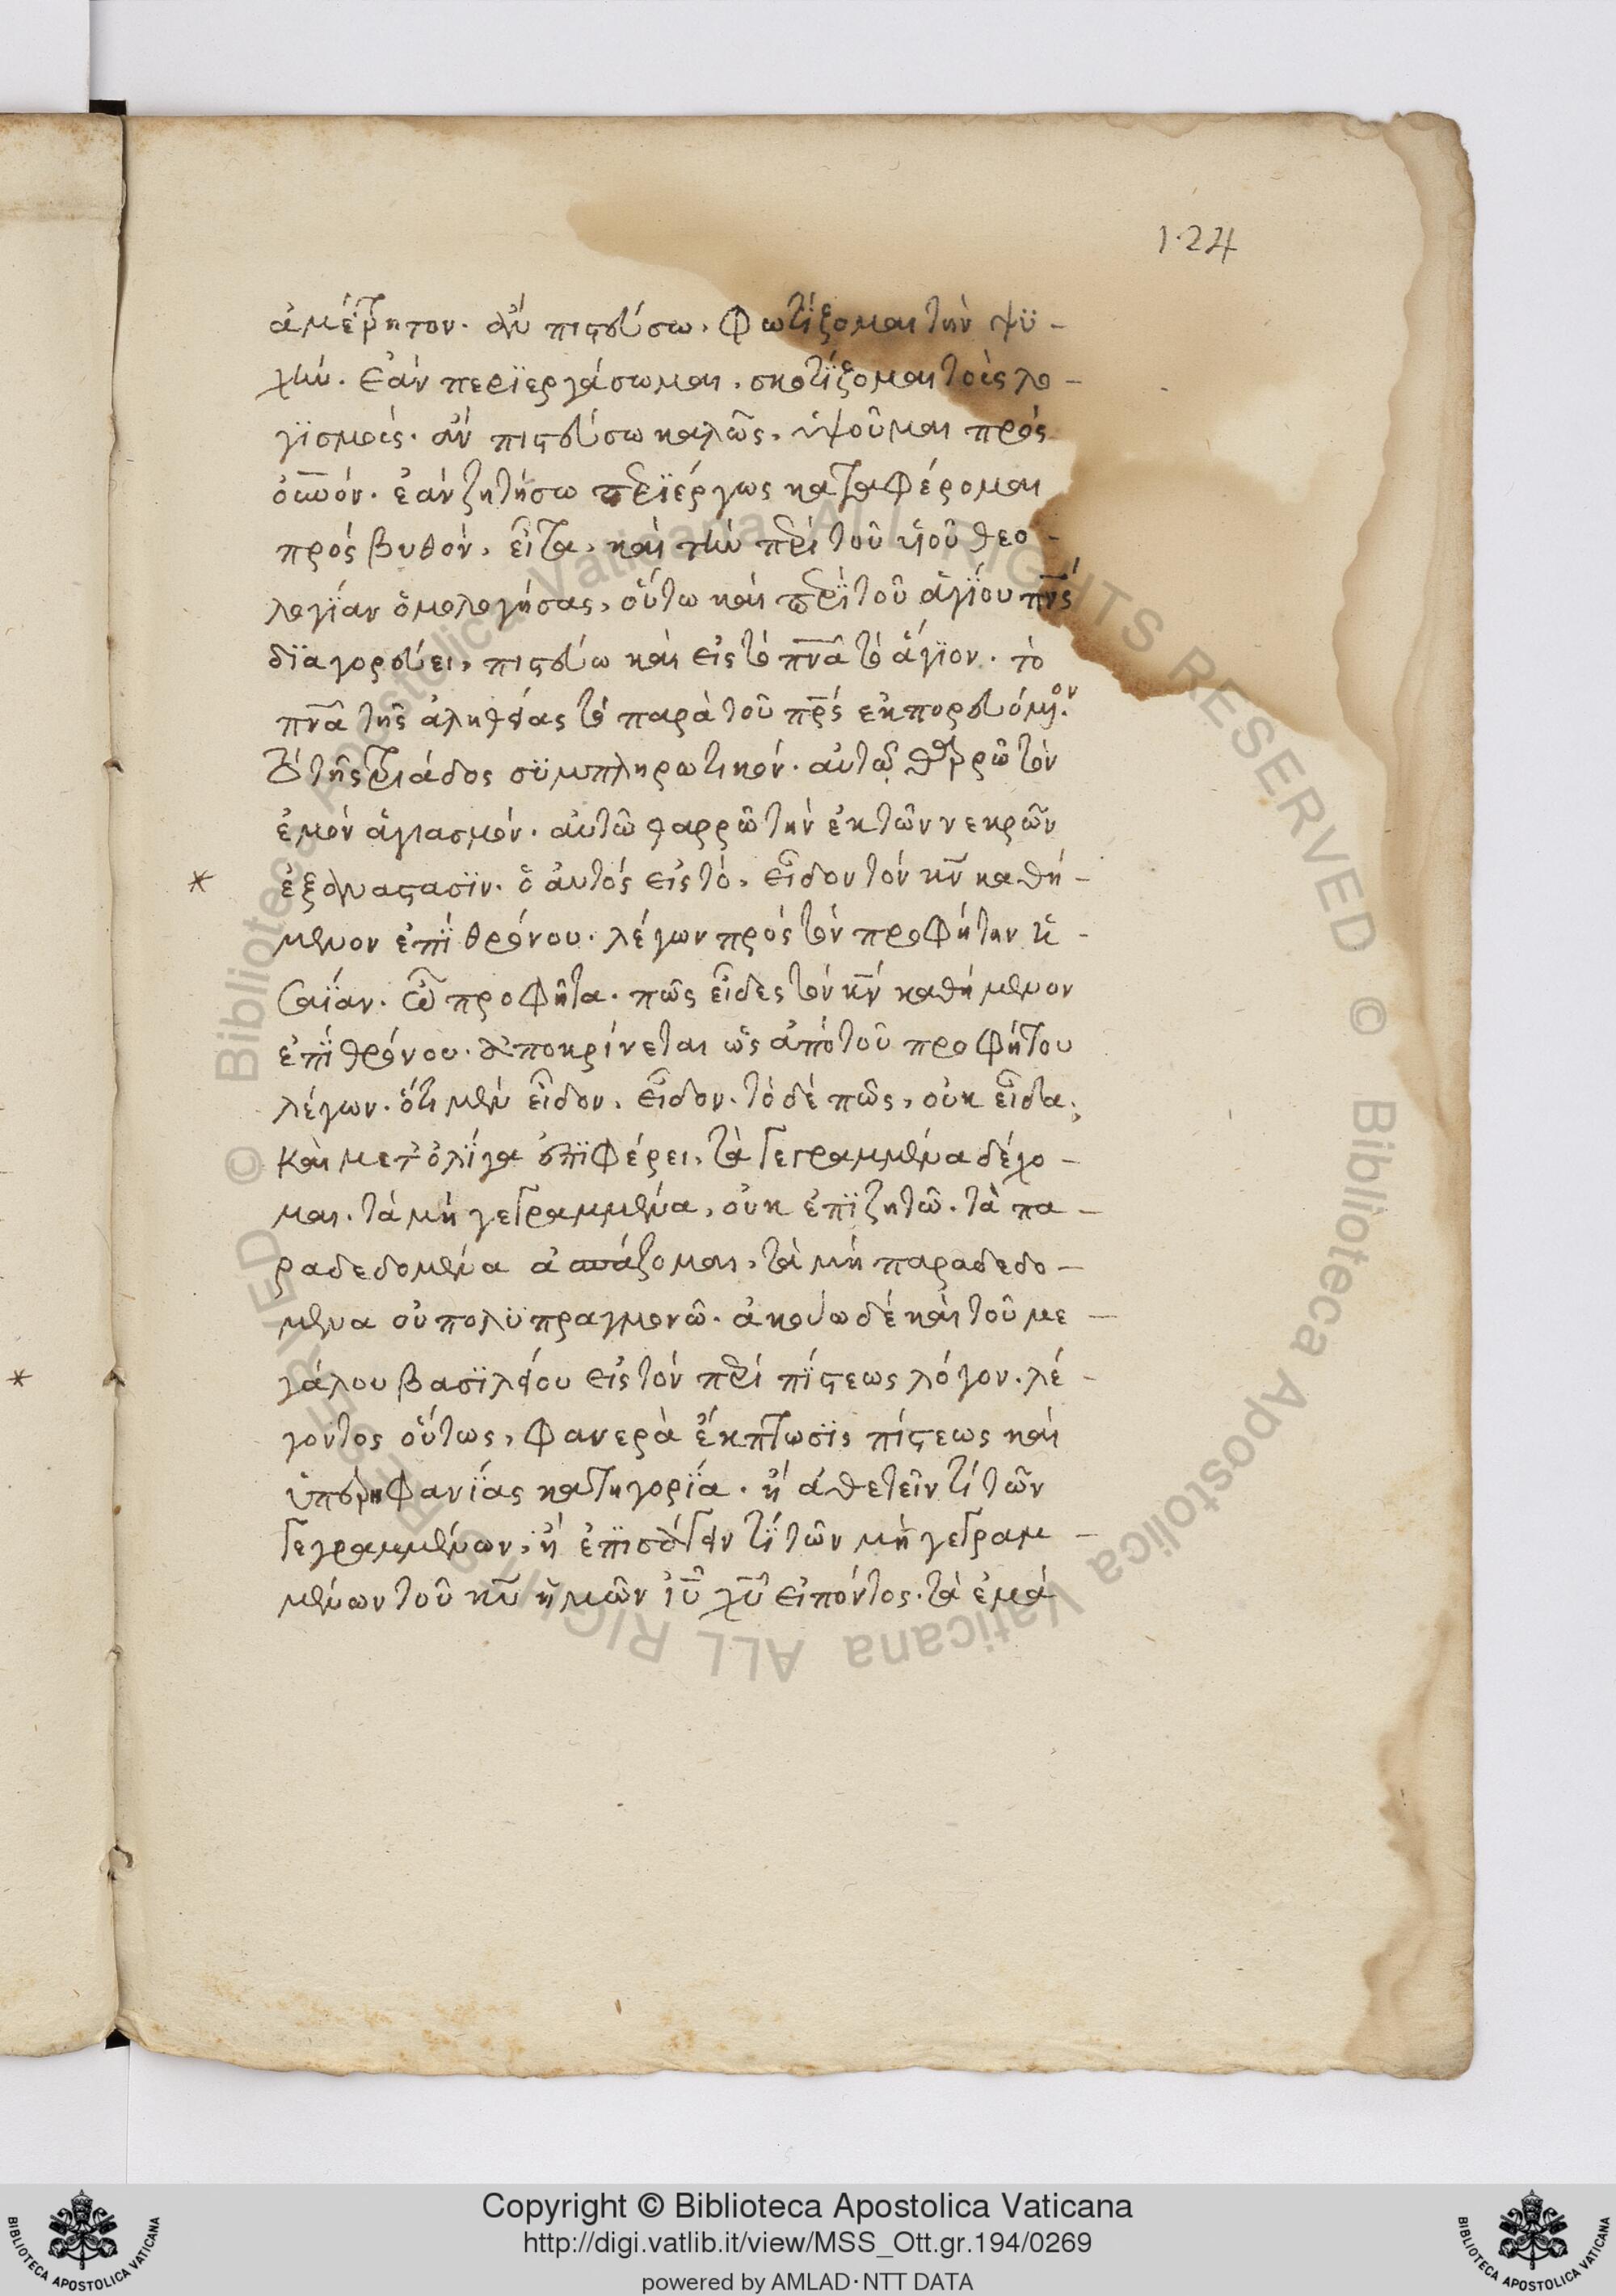 1·24
ἀμέτρητον. ἂν πιστεύσω, φωτίζομαι τὴν ψϋ-
χήν. ἐὰν περϊεργάσωμαι, σκοτίζομαι τοὺς λο-
γϊσμούς. ἂν πιστεύσω καλῶς, ὑψοῦμαι πρὸς
οὐνόν. ἐὰν ζητήσω περϊέργως καταφέρομαι
πρὸς βυθόν, εἶτα, καὶ τὴν περὶ τοῦ υἱοῦ θεο-
λογΐαν ὁμολογήσας, οὕτω καὶ περὶ τοῦ ἁγΐου πνς
δϊαγορεύει, πιστεύω καὶ εἰς τὸ πνα τὸ ἅγϊον. τὸ
πνα τῆς ἀληθείας τὸ παρὰ τοῦ πρς ἐκπορευόμενον.
τὸ τῆς τριάδος σϋμπληρωτικόν. αὐτῷ θαρρῶ τὸν
ἐμὸν ἁγιασμόν. αὐτῶ θαρρῶ τὴν ἐκ τῶν νεκρῶν
* ἐξανάστασϊν. ὁ αὐτὸς εἰς τὸ, εἶδον τὸν κν καθή-
μενον ἐπὶ θρόνου. λέγων πρὸς τὸν προφήτην ἠ-
σαΐαν. ὦ προφῆτα. πῶς εἶδες τὸν κν καθήμενον
ἐπὶ θρόνου. ἀποκρίνεται ὡς ἀπὸ τοῦ προφήτου
λέγων. ὅτι μὲν εἶδον, εἶδον. τὸ δὲ πῶς, οὐκ εἶδα.
καὶ μετ' ὀλΐγα ἐπϊφέρει, τὰ γεγραμμένα δέχο-
μαι. τὰ μὴ γεγραμμένα, οὐκ ἐπϊζητῶ. τὰ πα-
ραδεδομένα ἀσπάζομαι, τὰ μὴ παραδεδο-
μένα οὐ πολϋπραγμονῶ. ἀκούω δὲ καὶ τοῦ με-
* γάλου βασϊλείου εἰς τὸν περὶ πΐστεως λόγον. λέ-
γοντος οὕτως, φανερὰ ἔκπτωσϊς πίστεως καὶ
ὑπερηφανΐας κατηγορΐα. ἢ ἀθετεῖν τὶ τῶν
γεγραμμένων, ἢ ἐπϊσάγειν τὶ τῶν μὴ γεγραμ-
μένων τοῦ κυ ἡμῶν ἰυ χυ εἰπόντος. τὰ ἐμὰ
Copyright © Biblioteca Apostolica Vaticana
http://digi.vatlib.it/view/MSS_Ott.gr.194/0269
powered by AMLAD·NTT DATA
BIBLIOTECA APOSTOLICA VATICANA
BIBLIOTECA APOSTOLICA VATICANA
© Biblioteca Apostolica Vaticana ALL RIGHTS RESERVED © Biblioteca Apostolica Vaticana ALL RIGHTS RESERVED